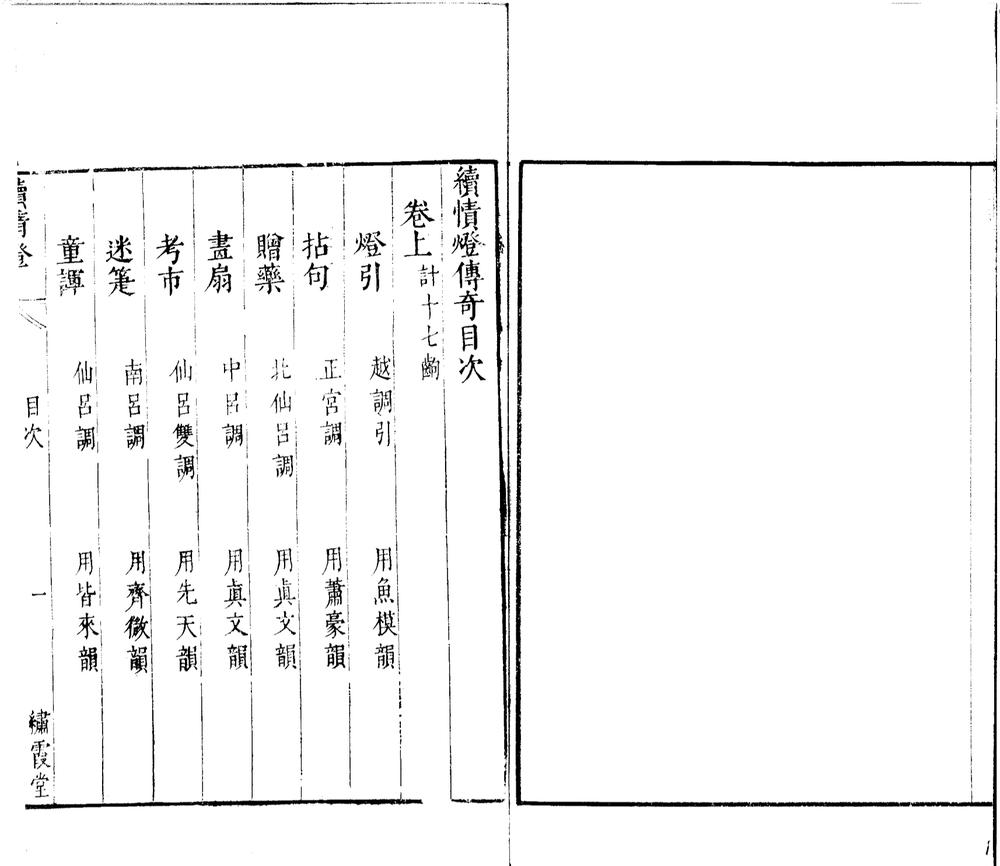 續情燈傳奇目次
卷上 計十七齣
燈引 越調引 用魚模韻
拈句 正宮調 用蕭豪韻
贈藥 北仙呂調 用真文韻
畫扇 中呂調 用真文韻
考市 仙呂雙調 用先天韻
迷箑 南呂調 用齊微韻
童諢 仙呂調 用皆來韻
續情燈 目次 一 繡霞堂